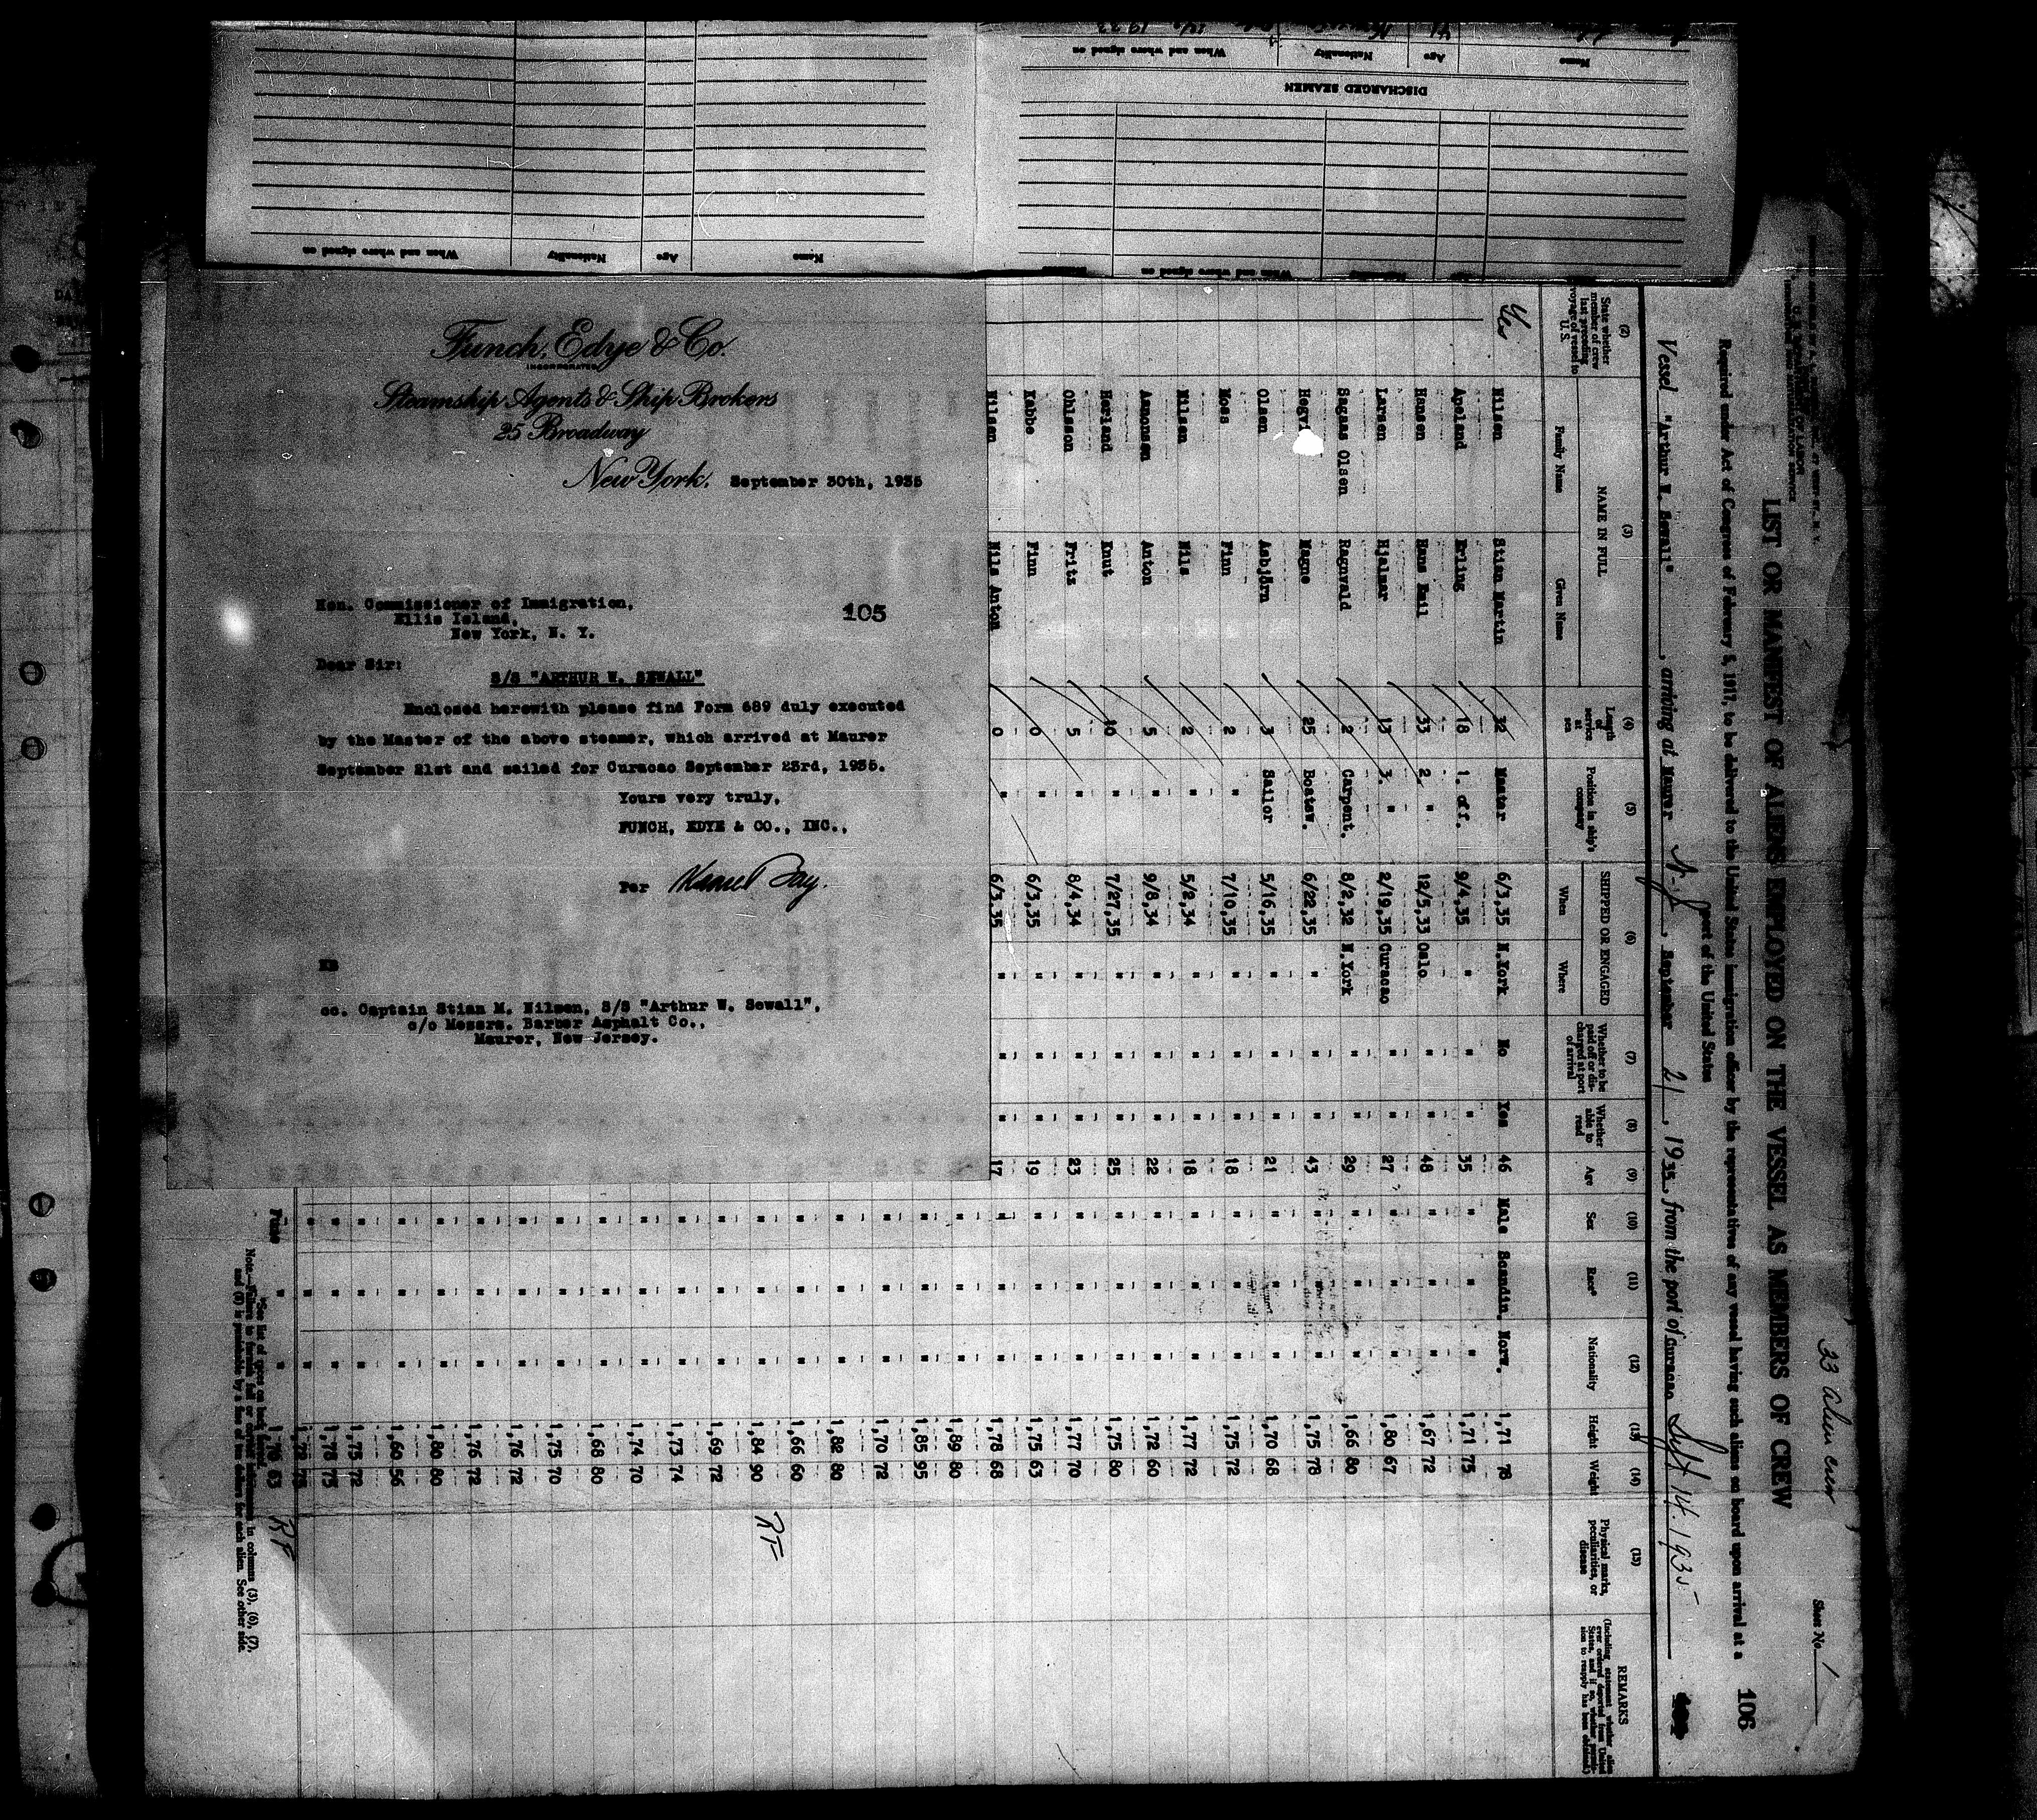 Name Age Nationality When and where signed on
DISCHARGED SEAMEN
Name Age Nationality When and where signed on
When and where signed on
Funch, Edye & Co.
INCORPORATED
Steamship Agents & Ship Brokers
25 Broadway
New York. September 30th, 1935
Hon. Commissioner of Immigration,
Ellis Island,
New York, N. Y.
105
Dear Sir:
S/S "ARTHUR W. SEWALL"
Enclosed herewith please find Form 689 duly executed
by the Master of the above steamer, which arrived at Maurer
September 21st and sailed for Curacao September 23rd, 1935.
Yours very truly,
FUNCH, EDYE & CO., INC.,
Per
cc. Captain Stian M. Nilsen, S/S "Arthur W. Sewall",
c/o Messrs. Barber Asphalt Co.,
Maurer, New Jersey.
33 alien crew
Sheet No. 1
LIST OR MANIFEST OF ALIENS EMPLOYED ON THE VESSEL AS MEMBERS OF CREW
106
Required under Act of Congress of February 5, 1917, to be delivered to the United States immigration officer by the representative of any vessel having such aliens on board upon arrival at a
port of the United States
Vessel "Arthur W. Sewall", arriving at Maurer N-J, September 21, 1935, from the port of Curacao Sept 14. 1935
(2) (3) (4) (5) (6) (7) (8) (9) (10) (11) (12) (13) (14) (15) REMARKS
State whether member of crew last preceding voyage of vessel to U.S. NAME IN FULL Family Name Given Name Length of service at sea Position in ship's company SHIPPED OR ENGAGED When Where Whether to be paid off or discharged at port of arrival Whether able to read Age Sex Race* Nationality Height Weight Physical marks, peculiarities, or disease
Yes Nilsen Stian Martin 32 Master 6/3,35 N.York No Yes 46 Male Scandin. Norw. 1,71 78
Apeland Erling 18 1. off. 9/4,35 " " " 35 " " " 1,71 75
Hansen Hans Emil 33 2. " 12/5,33 Oslo " " 48 " " " 1,67 72
Larsen Hjalmar 13 3. " 2/19,35 Curacao " " 27 " " " 1,80 67
Sagaas Olsen Ragnvald 2 Carpent. 8/2,32 N.York " " 29 " " " 1,66 80
Magne 25 Boatsw. 6/22,35 " " " 43 " " " 1,75 78
Olsen Asbjörn 3 Sailor 5/16,35 " " " 21 " " " 1,70 68
Moss Finn 2 " 7/10,35 " " " 18 " " " 1,75 72
Nilsen Nils 2 " 5/2,34 " " " 18 " " " 1,77 72
Asmonsen Anton 5 " 9/8,34 " " " 22 " " " 1,72 60
Herland Knut 10 " 7/27,35 " " " 25 " " " 1,75 80
Ohlsson Fritz 5 " 8/4,34 " " " 23 " " " 1,77 70
Kabbe Finn 0 " 6/3,35 " " " 19 " " " 1,75 63
Nilsen Nils Anton 0 " 6/3,35 " " " 17 " " " 1,78 68
" " " 1,89 80
" " " 1,85 95
" " " 1,70 72
" " " 1,82 80
" " " 1,66 60
" " " 1,84 90 RF
" " " 1,69 72
" " " 1,73 74
" " " 1,74 70
" " " 1,68 80
" " " 1,75 70
" " " 1,76 72
" " " 1,76 72
" " " 1,80 80
" " " 1,60 56
" " " 1,75 72
" " " 1,78 75
" " " 1,72 75
" " 1,76 63 RF
*See list of races on back hereof.
Note.—Failure to furnish full or correct information in columns (3), (6), (7),
and (8) is punishable by a fine of ten dollars for each alien. See other side.